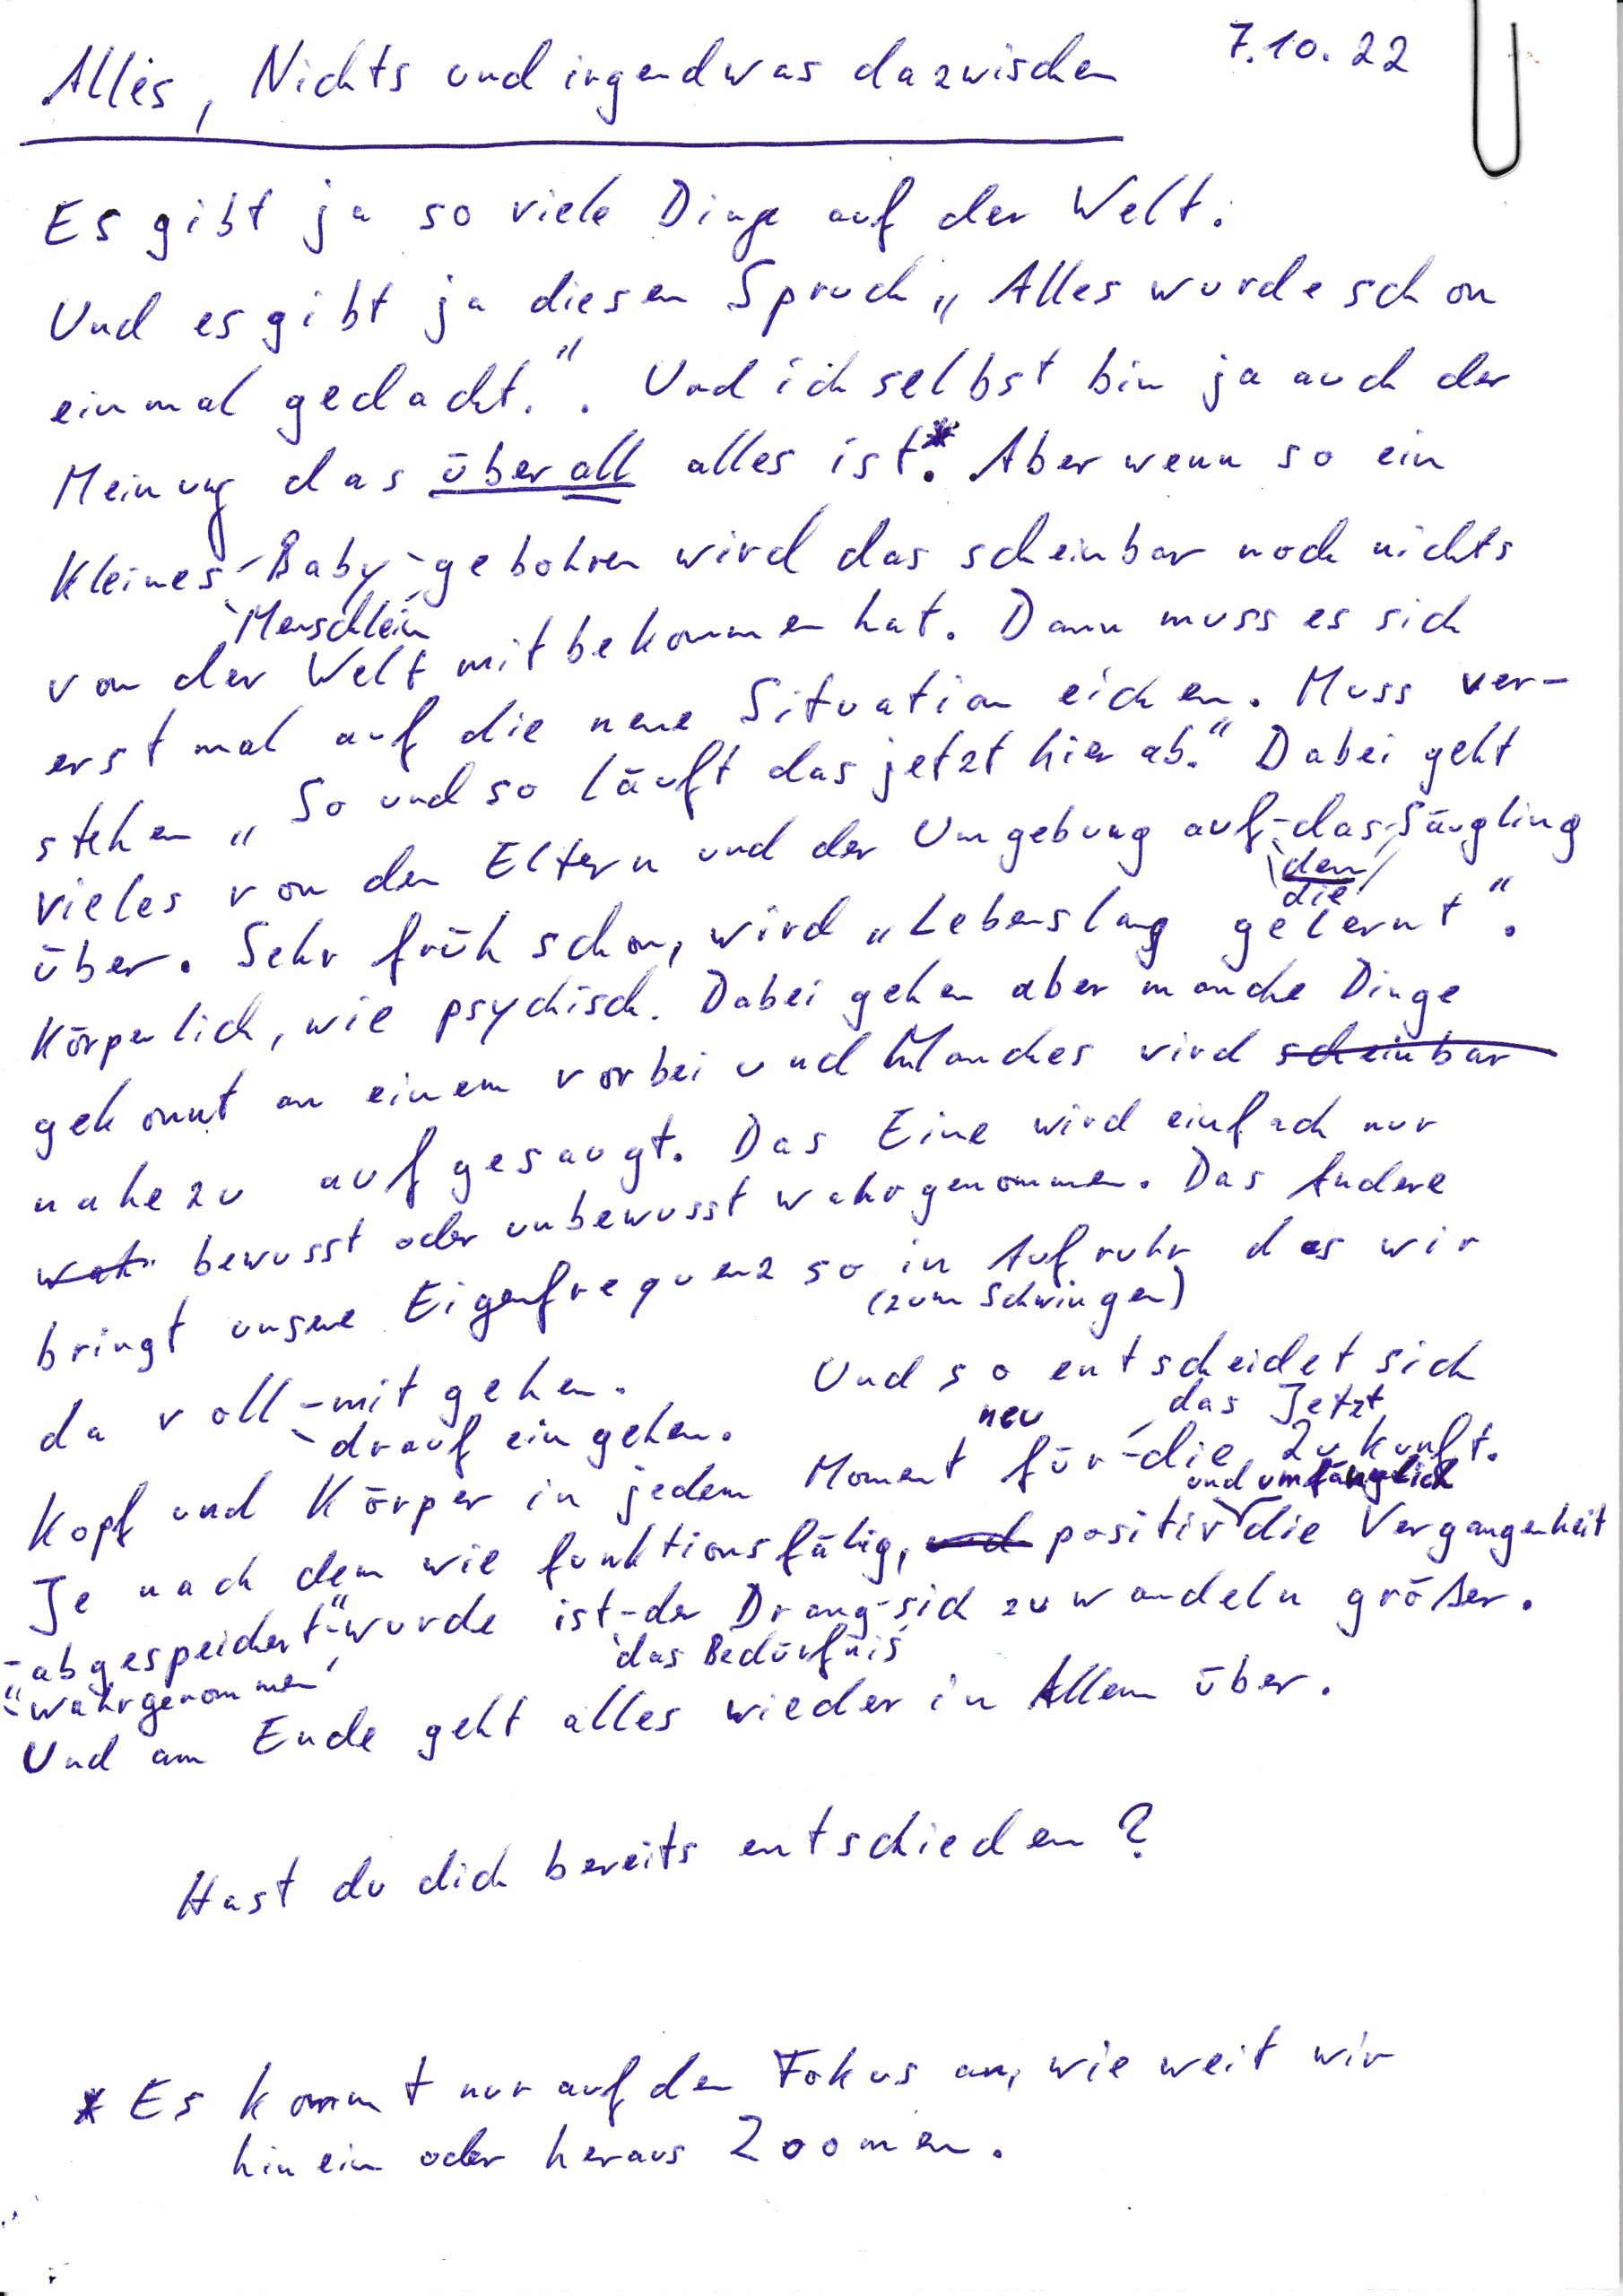 Alles, Nichts und irgendwas dazwischen 7.10.22
Es gibt ja so viele Dinge auf der Welt.
Und es gibt ja diesen Spruch „Alles wurde schon
einmal gedacht.“. Und ich selbst bin ja auch der
Meinung das überall alles ist*. Aber wenn so ein
kleines -Baby- gebohren wird das scheinbar noch nichts
Menschlein
von der Welt mitbekommen hat. Dann muss es sich
erst mal auf die neue Situation eichen. Muss ver-
stehen „So und so läuft das jetzt hier ab.“ Dabei geht
vieles von den Eltern und der Umgebung auf -das- Säugling
den
die
über. Sehr früh schon, wird „Lebenslang gelernt“.
Körperlich, wie psychisch. Dabei gehen aber manche Dinge
gekonnt an einem vorbei und Manches wird scheinbar
nahezu aufgesaugt. Das Eine wird einfach nur
wah bewusst oder unbewusst wahrgenommen. Das Andere
bringt unsere Eigenfrequenz so in Aufruhr das wir
(zum Schwingen)
da voll -mit gehen. Und so entscheidet sich
drauf eingehen.
neu das Jetzt
Kopf und Körper in jedem Moment für -die Zukunft.
und umfänglich
Je nach dem wie funktionsfähig, und positiv die Vergangenheit
-abgespeichert“- wurde ist -der Drang- sich zu wandeln größer.
das Bedürfnis
"wahrgenommen
Und am Ende geht alles wieder in Allem über.
Hast du dich bereits entschieden?
* Es kommt nur auf den Fokus an, wie weit wir
hinein oder heraus Zoomen.